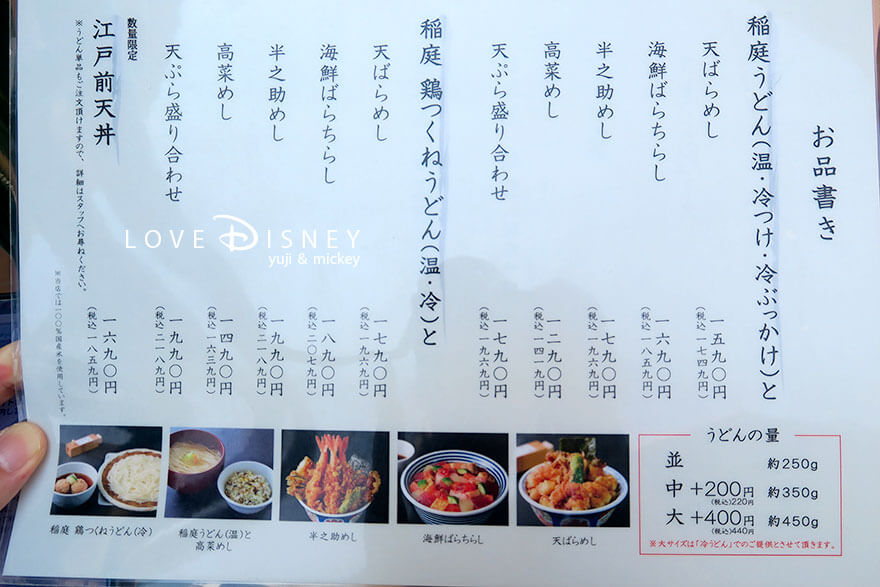 お品書き
稲庭うどん(温・冷つけ・冷ぶっかけ)と
天ばらめし 一五九〇円
(税込 一七四九円)
海鮮ばらちらし 一六九〇円
(税込 一八五九円)
半之助めし 一七九〇円
(税込 一九六九円)
高菜めし 一二九〇円
(税込 一四一九円)
天ぷら盛り合わせ 一七九〇円
(税込 一九六九円)
稲庭 鶏つくねうどん(温・冷)と
天ばらめし 一七九〇円
(税込 一九六九円)
海鮮ばらちらし 一八九〇円
(税込 二〇七九円)
半之助めし 一九九〇円
(税込 二一八九円)
高菜めし 一四九〇円
(税込 一六三九円)
天ぷら盛り合わせ 一九九〇円
(税込 二一八九円)
数量限定
江戸前天丼 一六九〇円
(税込 一八五九円)
※うどん単品もご注文頂けますので、詳細はスタッフへお尋ねください。
※当店では一〇〇%国産米を使用しています。
LOVE DISNEY
yuji & mickey
稲庭 鶏つくねうどん(冷)
稲庭うどん(温)と
高菜めし
半之助めし
海鮮ばらちらし
天ばらめし
うどんの量
並 約250g
中 +200円 約350g
(税込)220円
大 +400円 約450g
(税込)440円
※大サイズは「冷うどん」でのご提供とさせて頂きます。